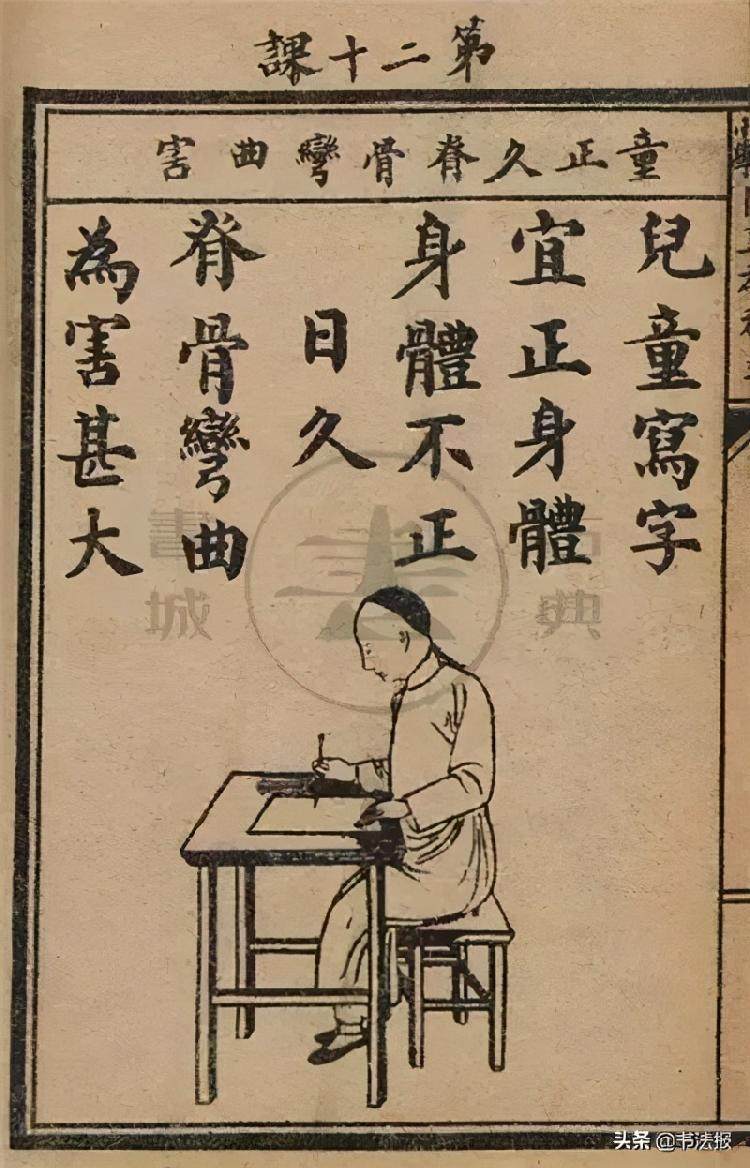 第二十課
童正久脊骨彎曲害
兒童寫字
宜正身體
身體不正
日久
脊骨彎曲
為害甚大
古典
書城
头条 @书法报